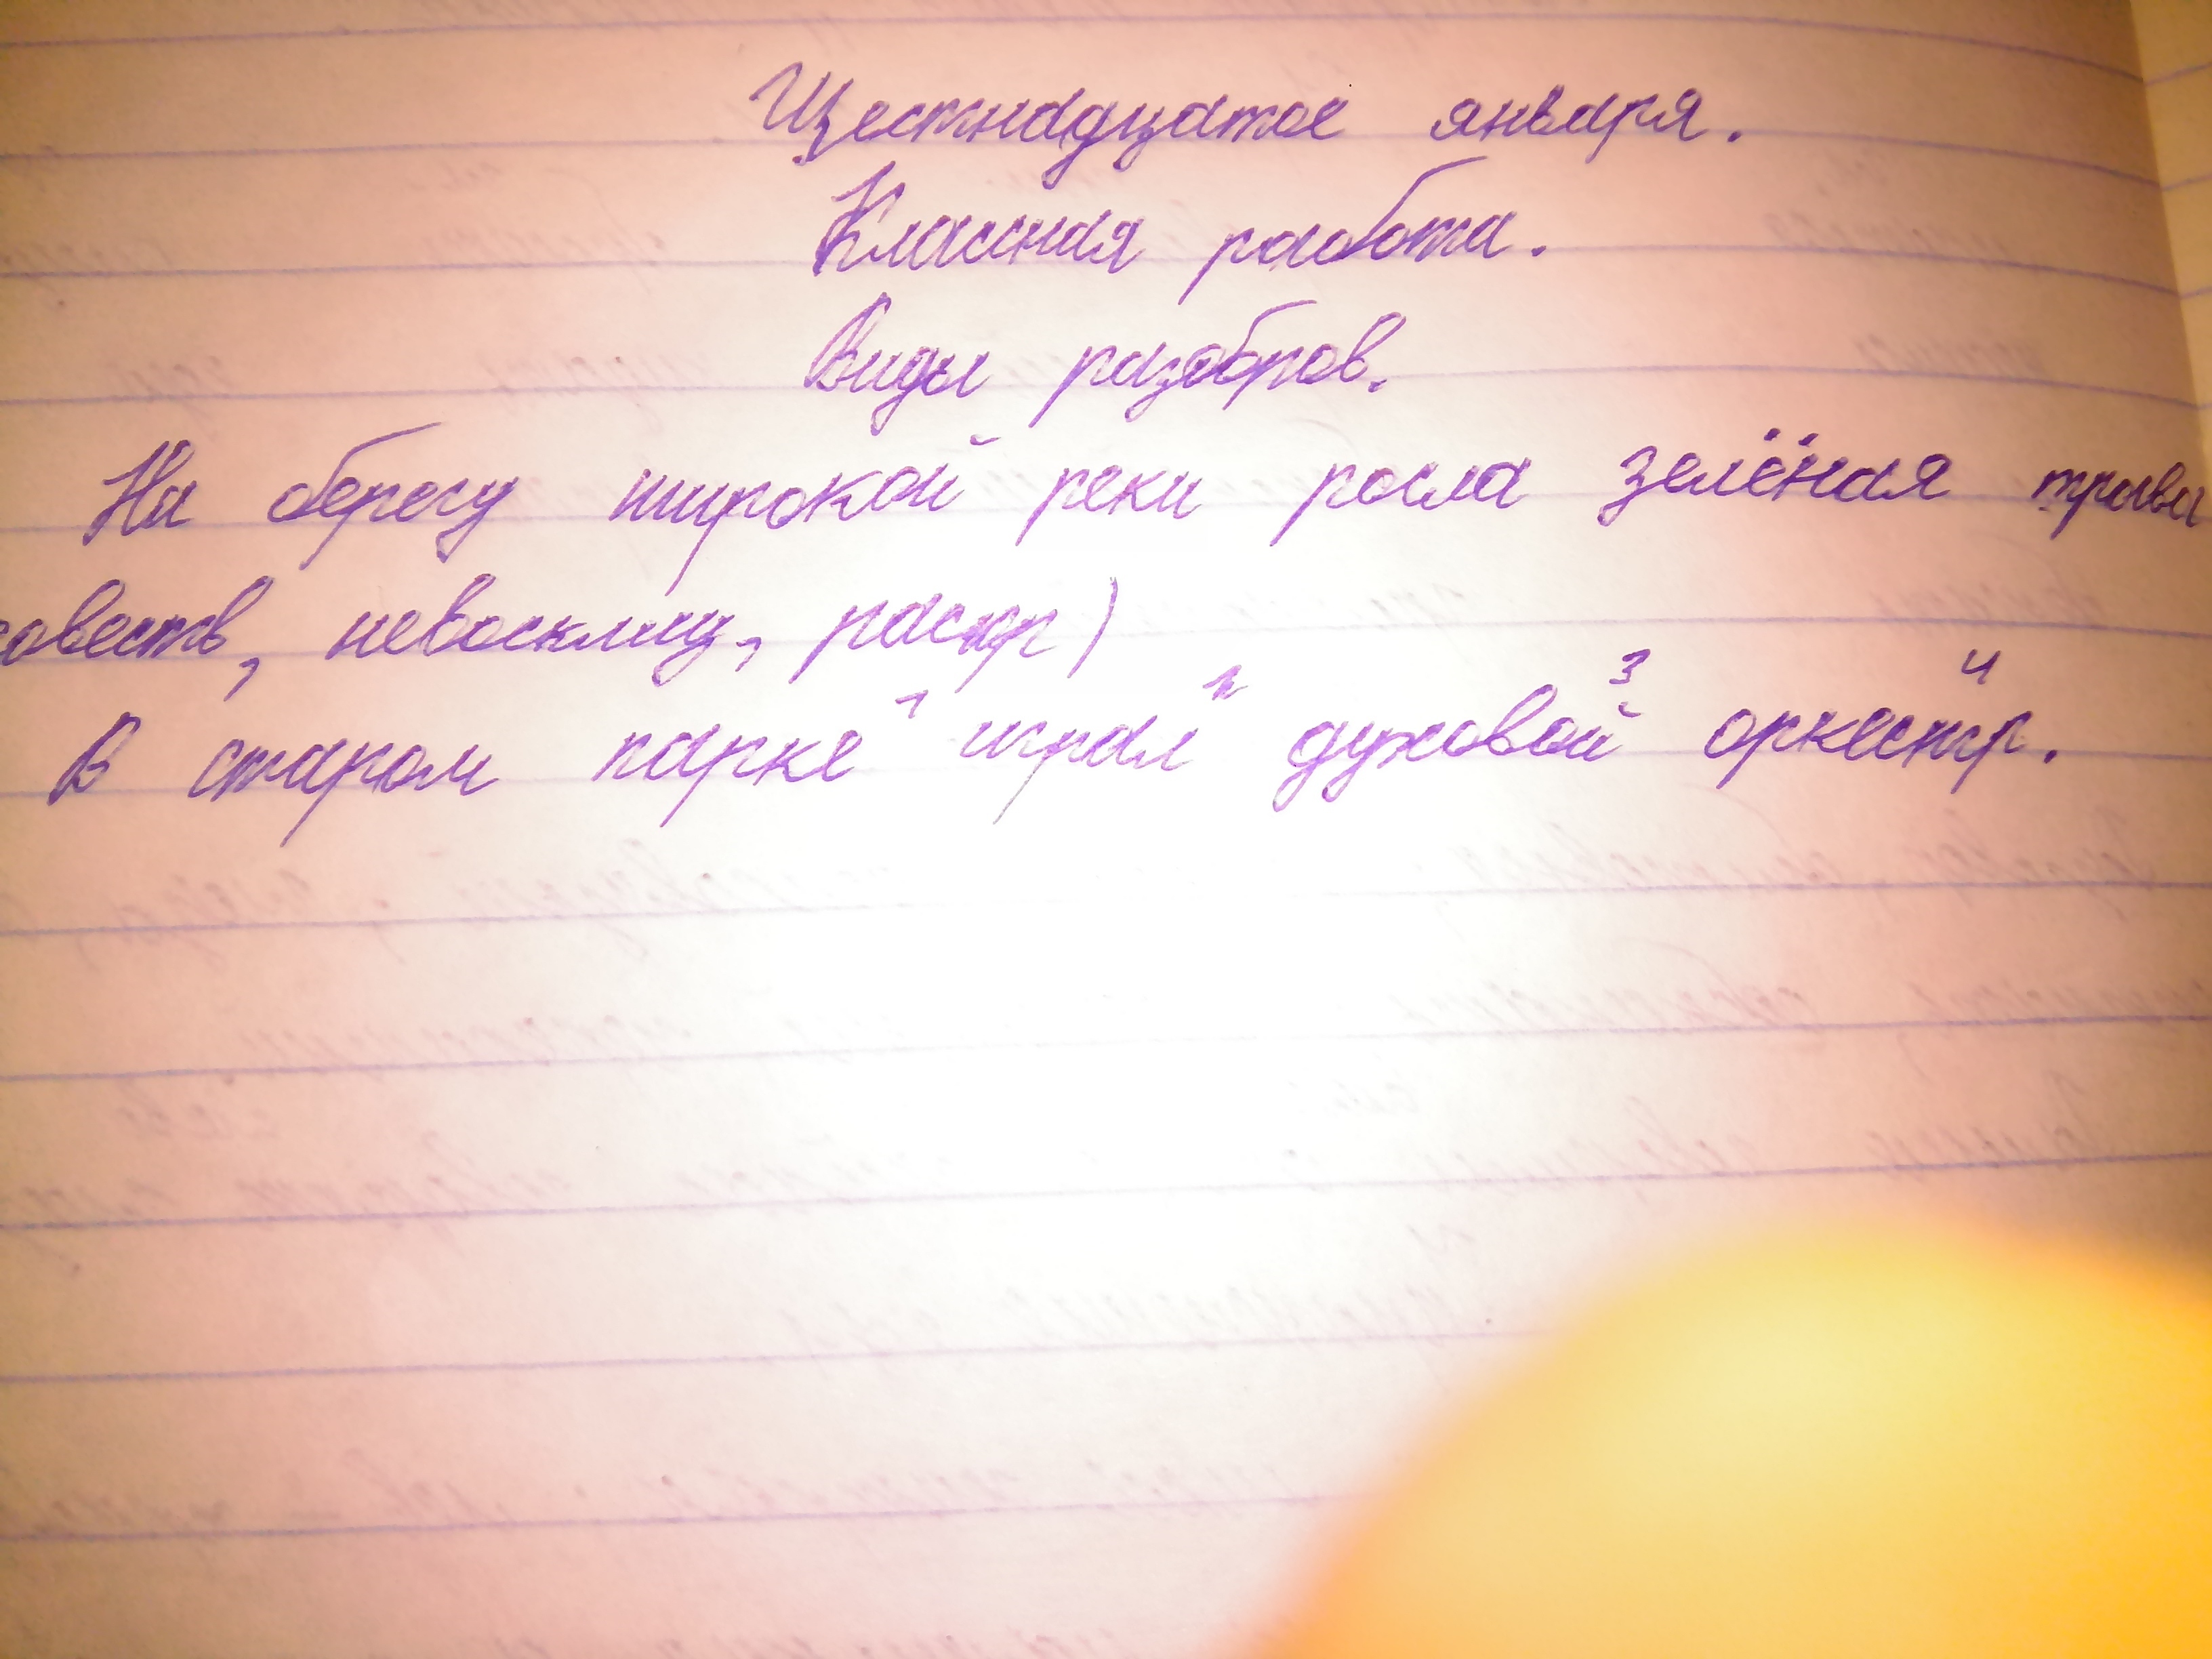 Щестнадцатое января.
Классная работа.
Виды разобров.
На берегу широкой реки росла зелёная трава
овеств, невосклиц, распр)
В старом парке 1 играл 2 духовой 3 оркестр. 4